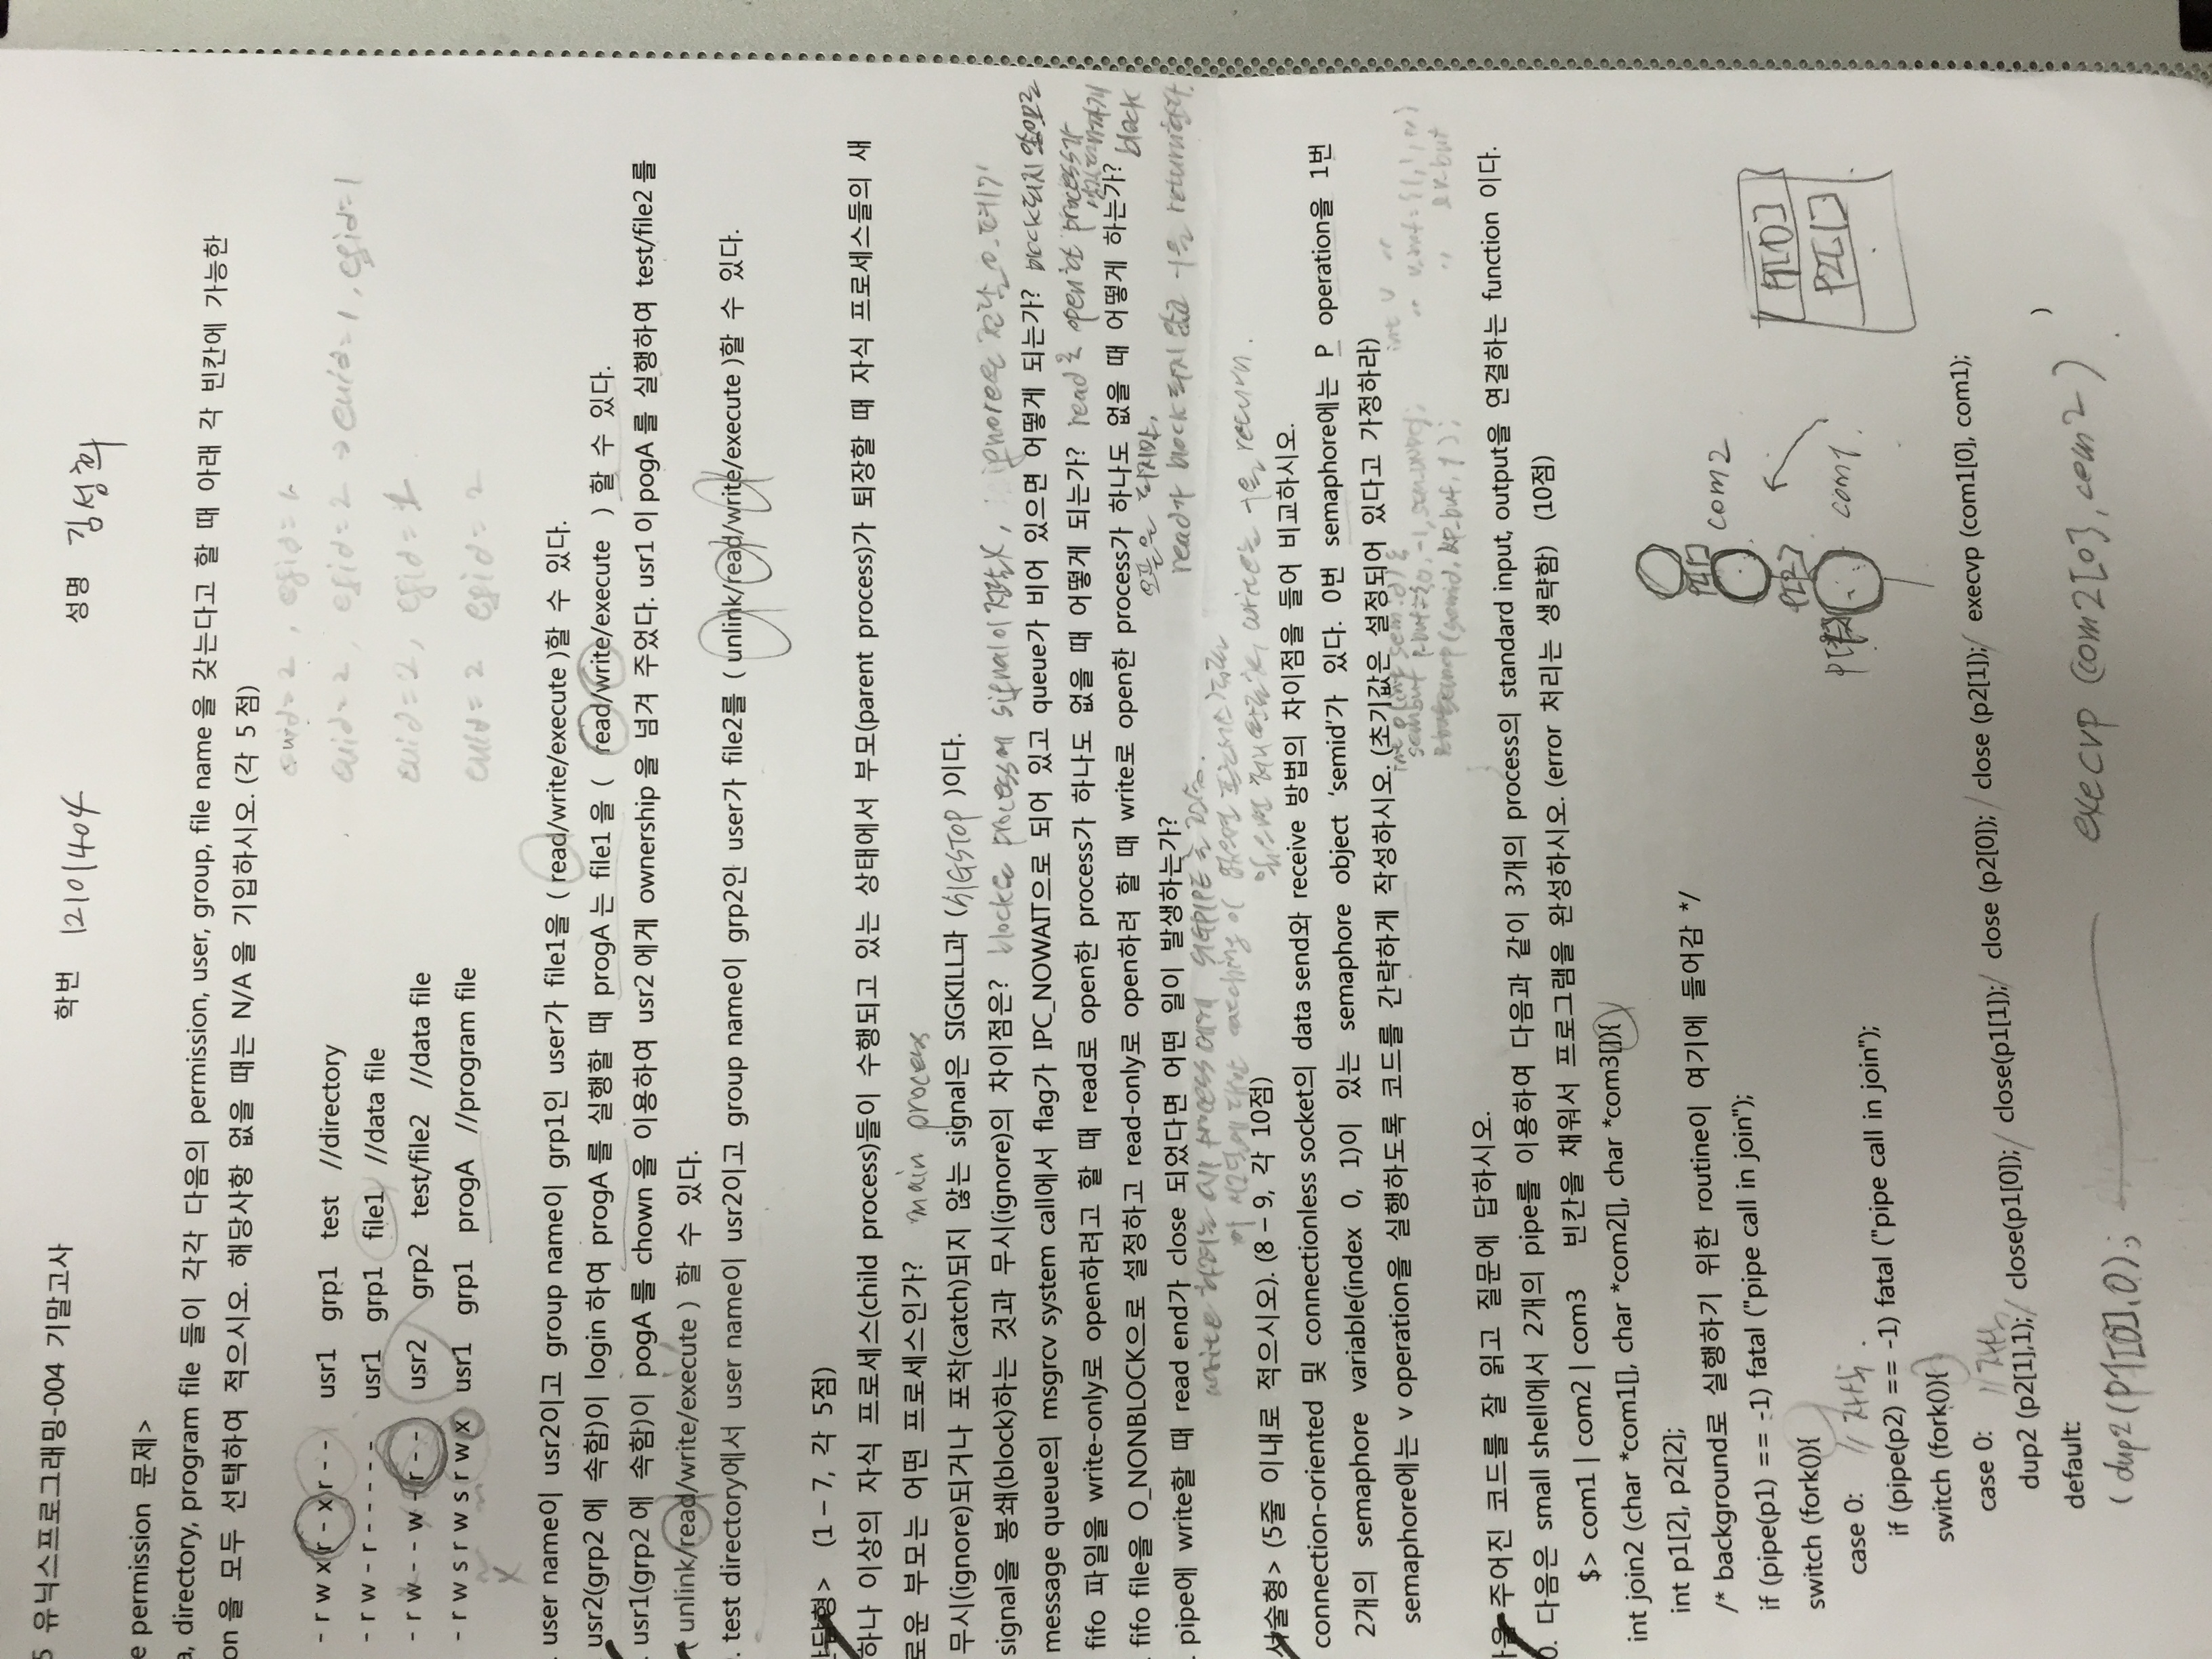 5 유닉스프로그래밍-004 기말고사 학번 12101404 성명 김성희
e permission 문제>
a, directory, program file 들이 각각 다음의 permission, user, group, file name 을 갖는다고 할 때 아래 각 빈칸에 가능한
on 을 모두 선택하여 적으시오. 해당사항 없을 때는 N/A 을 기입하시오. (각 5 점)
euid=2, egid=1
- r w x r - x r - - usr1 grp1 test //directory
euid=2, egid=2 → euid=1, egid=1
- r w - r - - - - - usr1 grp1 file1 //data file
- r w - - w - r - - usr2 grp2 test/file2 //data file
euid=2, egid=1
- r w s r w s r w x usr1 grp1 progA //program file
euid=2 egid=2
X
. user name이 usr2이고 group name이 grp1인 user가 file1을 ( read/write/execute )할 수 있다.
. usr2(grp2 에 속함)이 login 하여 progA 를 실행할 때 progA 는 file1 을 ( read/write/execute ) 할 수 있다.
. usr1(grp2 에 속함)이 pogA 를 chown 을 이용하여 usr2 에게 ownership 을 넘겨 주었다. usr1 이 pogA 를 실행하여 test/file2 를
( unlink/read/write/execute ) 할 수 있다.
. test directory에서 user name이 usr2이고 group name이 grp2인 user가 file2를 ( unlink/read/write/execute )할 수 있다.
단답형> (1 – 7, 각 5점)
하나 이상의 자식 프로세스(child process)들이 수행되고 있는 상태에서 부모(parent process)가 퇴장할 때 자식 프로세스들의 새
로운 부모는 어떤 프로세스인가? main process
무시(ignore)되거나 포착(catch)되지 않는 signal은 SIGKILL과 (SIGSTOP )이다.
signal을 봉쇄(block)하는 것과 무시(ignore)의 차이점은? block은 process에 signal이 전달X, ignore은 전달 O. 폐기
message queue의 msgrcv system call에서 flag가 IPC_NOWAIT으로 되어 있고 queue가 비어 있으면 어떻게 되는가? block되지 않으므로
fifo 파일을 write-only로 open하려고 할 때 read로 open한 process가 하나도 없을 때 어떻게 되는가? read로 open한 process가
생길때까지
. fifo file을 O_NONBLOCK으로 설정하고 read-only로 open하려 할 때 write로 open한 process가 하나도 없을 때 어떻게 하는가? block
오픈은 되지만,
. pipe에 write할 때 read end가 close 되었다면 어떤 일이 발생하는가? read가 block되지 않고 -1을 return한다.
write 하려는 process에게 SIGPIPE를 보냄.
이 시그널에 대한 catching이 없으면 프로세스 종료
있으면 처리 완료 후 write는 -1을 return.
서술형> (5줄 이내로 적으시오). (8 – 9, 각 10점)
connection-oriented 및 connectionless socket의 data send와 receive 방법의 차이점을 들어 비교하시오.
2개의 semaphore variable(index 0, 1)이 있는 semaphore object ‘semid’가 있다. 0번 semaphore에는 P operation을 1번
semaphore에는 v operation을 실행하도록 코드를 간략하게 작성하시오. (초기값은 설정되어 있다고 가정하라)
int p(int semid) { int v "
sembuf p_buf={0, -1, SEM_UNDO};
(semid, &p_buf, 1);
}
다음 주어진 코드를 잘 읽고 질문에 답하시오.
0. 다음은 small shell에서 2개의 pipe를 이용하여 다음과 같이 3개의 process의 standard input, output을 연결하는 function 이다.
$> com1 | com2 | com3 빈칸을 채워서 프로그램을 완성하시오. (error 처리는 생략함) (10점)
int join2 (char *com1[], char *com2[], char *com3[]){
int p1[2], p2[2];
/* background로 실행하기 위한 routine이 여기에 들어감 */
com2
if (pipe(p1) == -1) fatal ("pipe call in join");
P1[0]
switch (fork()){
P2[1]
case 0: // 자식.
com1
if (pipe(p2) == -1) fatal ("pipe call in join");
switch (fork()){
case 0: // 자식
dup2 (p2[1],1); / close(p1[0]); / close(p1[1]); / close (p2[0]); / close (p2[1]); / execvp (com1[0], com1);
default: )
( dup2(P1[0],0); execvp (com2[0], com2 )